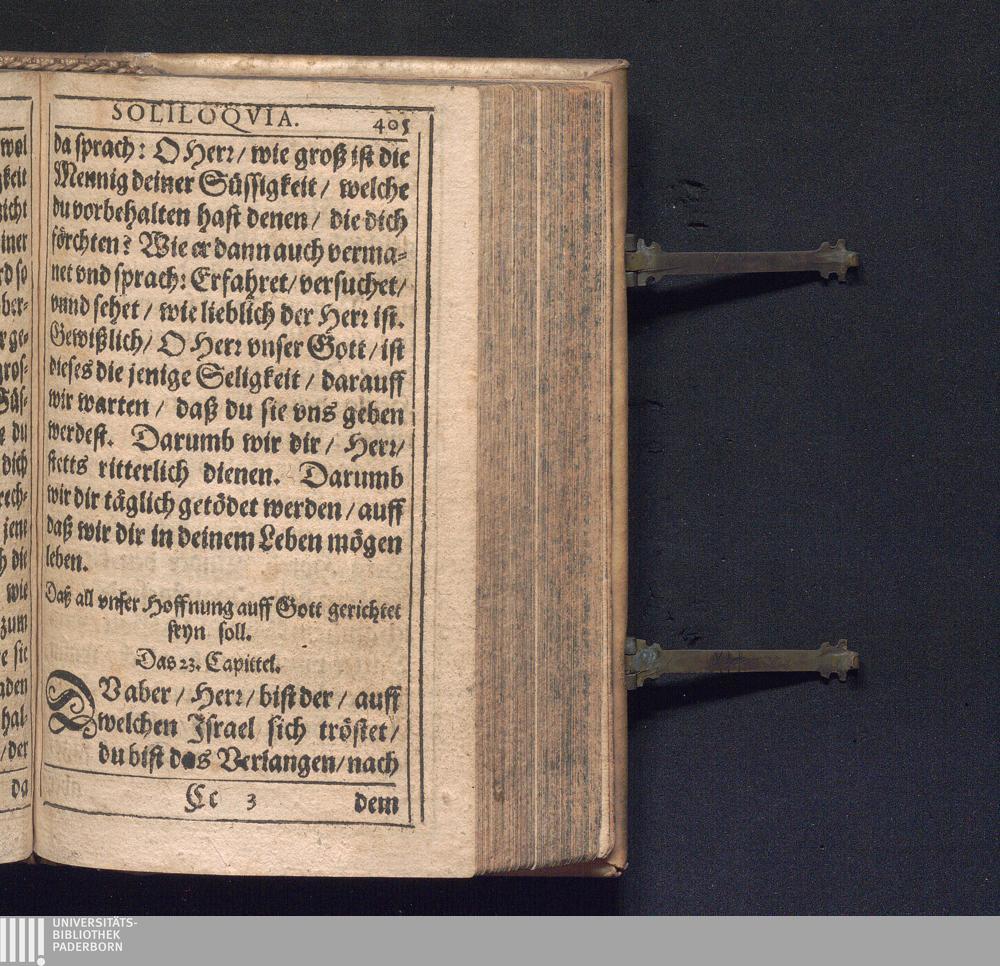 wol
gkeit
nicht
iner
rd so
ber-
r ge-
gros-
Süs-
e du
dich
rech-
jene
h die
wie
zum
e sie
aden
hal-
/ der
da
SOLILOQVIA. 405
da sprach: O Herr / wie groß ist die
Mennig deiner Süssigkeit / welche
du vorbehalten hast denen / die dich
förchten? Wie er dann auch verma-
net vnd sprach: Erfahret / versuchet /
vnnd sehet / wie lieblich der Herr ist.
Gewißlich / O Herr vnser Gott / ist
dieses die jenige Seligkeit / darauff
wir warten / daß du sie vns geben
werdest. Darumb wir dir / Herr /
stetts ritterlich dienen. Darumb
wir dir täglich getödet werden / auff
daß wir dir in deinem Leben mögen
leben.
Daß all vnser Hoffnung auff Gott gerichtet
seyn soll.
Das 23. Capittel.
DV aber / Herr / bist der / auff
welchen Israel sich tröstet /
du bist das Verlangen / nach
Cc 3 dem
UNIVERSITÄTS-
BIBLIOTHEK
PADERBORN